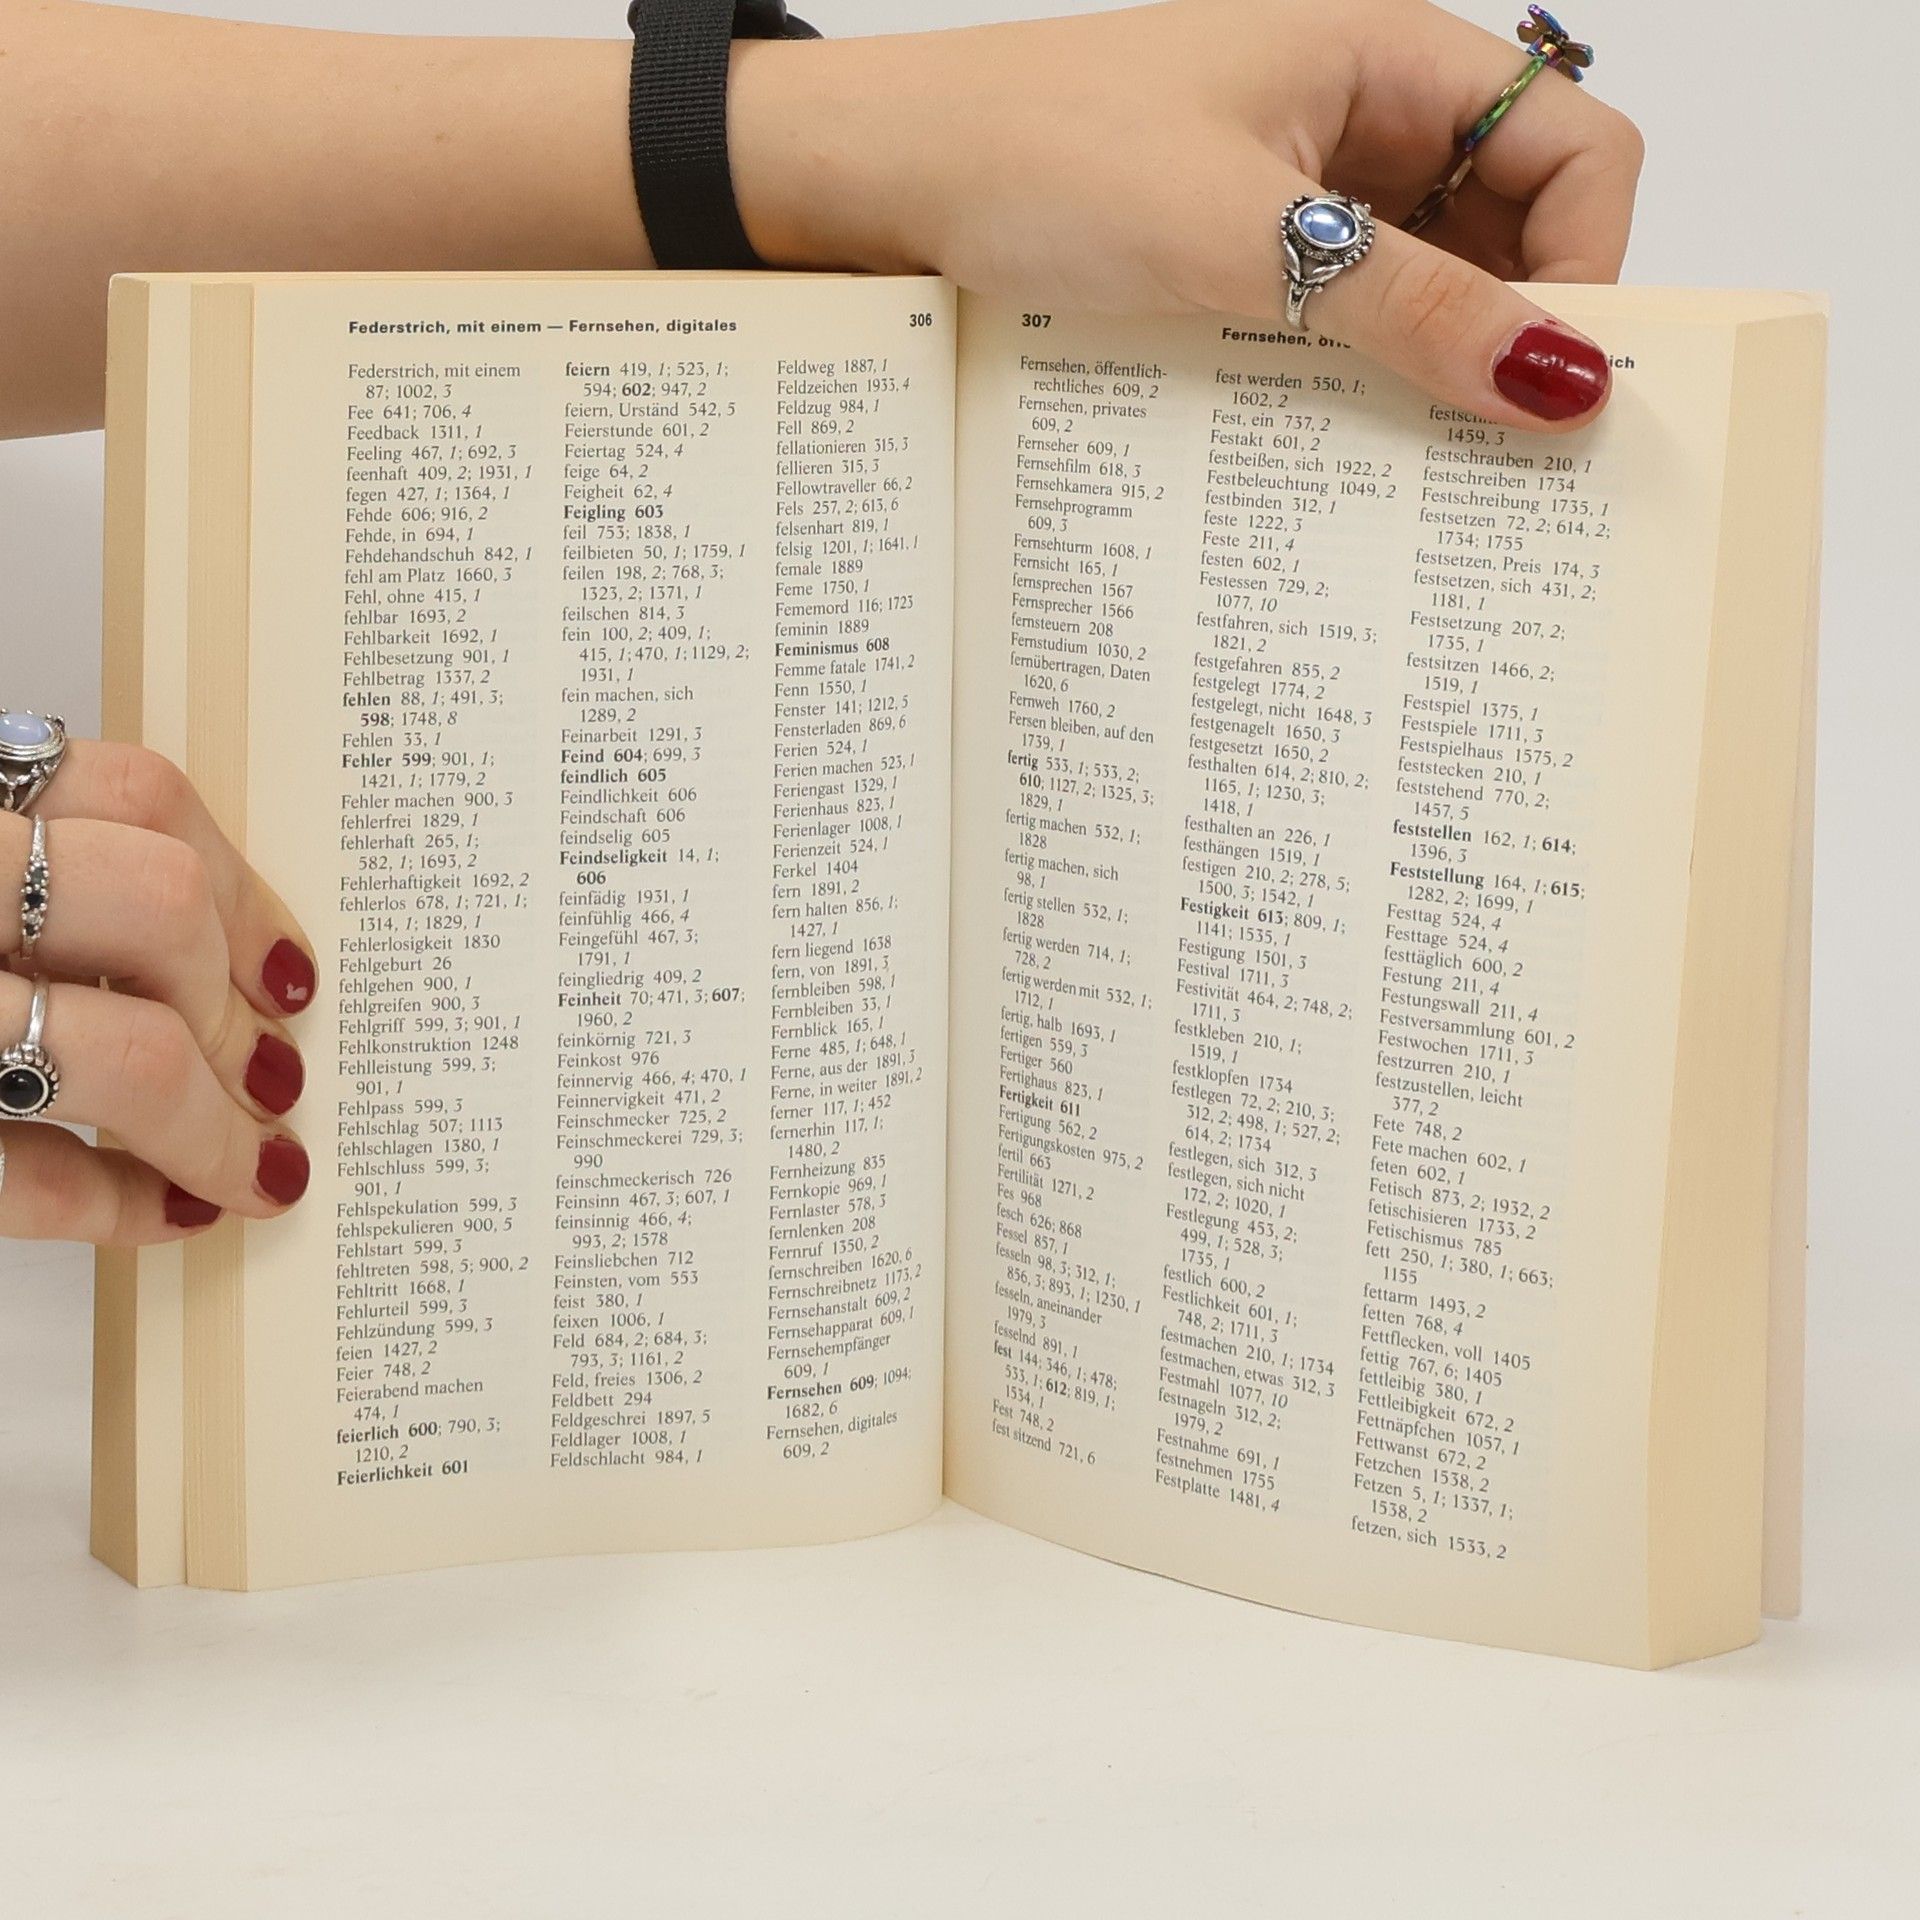 Federstrich, mit einem — Fernsehen, digitales
306
Federstrich, mit einem
87; 1002, 3
Fee 641; 706, 4
Feedback 1311, 1
Feeling 467, 1; 692, 3
feenhaft 409, 2; 1931, 1
fegen 427, 1; 1364, 1
Fehde 606; 916, 2
Fehde, in 694, 1
Fehdehandschuh 842, 1
fehl am Platz 1660, 3
Fehl, ohne 415, 1
fehlbar 1693, 2
Fehlbarkeit 1692, 1
Fehlbesetzung 901, 1
Fehlbetrag 1337, 2
fehlen 88, 1; 491, 3;
598; 1748, 8
Fehlen 33, 1
Fehler 599; 901, 1;
1421, 1; 1779, 2
Fehler machen 900, 3
fehlerfrei 1829, 1
fehlerhaft 265, 1;
582, 1; 1693, 2
Fehlerhaftigkeit 1692, 2
fehlerlos 678, 1; 721, 1;
1314, 1; 1829, 1
Fehlerlosigkeit 1830
Fehlgeburt 26
fehlgehen 900, 1
fehlgreifen 900, 3
Fehlgriff 599, 3; 901, 1
Fehlkonstruktion 1248
Fehlleistung 599, 3;
901, 1
Fehlpass 599, 3
Fehlschlag 507; 1113
fehlschlagen 1380, 1
Fehlschluss 599, 3;
901, 1
Fehlspekulation 599, 3
fehlspekulieren 900, 5
Fehlstart 599, 3
fehltreten 598, 5; 900, 2
Fehltritt 1668, 1
Fehlurteil 599, 3
Fehlzündung 599, 3
feien 1427, 2
Feier 748, 2
Feierabend machen
474, 1
feierlich 600; 790, 3;
1210, 2
Feierlichkeit 601
feiern 419, 1; 523, 1;
594; 602; 947, 2
feiern, Urständ 542, 5
Feierstunde 601, 2
Feiertag 524, 4
feige 64, 2
Feigheit 62, 4
Feigling 603
feil 753; 1838, 1
feilbieten 50, 1; 1759, 1
feilen 198, 2; 768, 3;
1323, 2; 1371, 1
feilschen 814, 3
fein 100, 2; 409, 1;
415, 1; 470, 1; 1129, 2;
1931, 1
fein machen, sich
1289, 2
Feinarbeit 1291, 3
Feind 604; 699, 3
feindlich 605
Feindlichkeit 606
Feindschaft 606
feindselig 605
Feindseligkeit 14, 1;
606
feinfädig 1931, 1
feinfühlig 466, 4
Feingefühl 467, 3;
1791, 1
feingliedrig 409, 2
Feinheit 70; 471, 3; 607;
1960, 2
feinkörnig 721, 3
Feinkost 976
feinnervig 466, 4; 470, 1
Feinnervigkeit 471, 2
Feinschmecker 725, 2
Feinschmeckerei 729, 3;
990
feinschmeckerisch 726
Feinsinn 467, 3; 607, 1
feinsinnig 466, 4;
993, 2; 1578
Feinsliebchen 712
Feinsten, vom 553
feist 380, 1
feixen 1006, 1
Feld 684, 2; 684, 3;
793, 3; 1161, 2
Feld, freies 1306, 2
Feldbett 294
Feldgeschrei 1897, 5
Feldlager 1008, 1
Feldschlacht 984, 1
Feldweg 1887, 1
Feldzeichen 1933, 4
Feldzug 984, 1
Fell 869, 2
fellationieren 315, 3
fellieren 315, 3
Fellowtraveller 66, 2
Fels 257, 2; 613, 6
felsenhart 819, 1
felsig 1201, 1; 1641, 1
female 1889
Feme 1750, 1
Fememord 116; 1723
feminin 1889
Feminismus 608
Femme fatale 1741, 2
Fenn 1550, 1
Fenster 141; 1212, 5
Fensterladen 869, 6
Ferien 524, 1
Ferien machen 523, 1
Feriengast 1329, 1
Ferienhaus 823, 1
Ferienlager 1008, 1
Ferienzeit 524, 1
Ferkel 1404
fern 1891, 2
fern halten 856, 1;
1427, 1
fern liegend 1638
fern, von 1891, 3
fernbleiben 598, 1
Fernbleiben 33, 1
Fernblick 165, 1
Ferne 485, 1; 648, 1
Ferne, aus der 1891, 3
Ferne, in weiter 1891, 2
ferner 117, 1; 452
fernerhin 117, 1;
1480, 2
Fernheizung 835
Fernkopie 969, 1
Fernlaster 578, 3
fernlenken 208
Fernruf 1350, 2
fernschreiben 1620, 6
Fernschreibnetz 1173, 2
Fernsehanstalt 609, 2
Fernsehapparat 609, 1
Fernsehempfänger
609, 1
Fernsehen 609; 1094;
1682, 6
Fernsehen, digitales
609, 2
307
Fernsehen,
ich
Fernsehen, öffentlich-
rechtliches 609, 2
Fernsehen, privates
609, 2
Fernseher 609, 1
Fernsehfilm 618, 3
Fernsehkamera 915, 2
Fernsehprogramm
609, 3
Fernsehturm 1608, 1
Fernsicht 165, 1
fernsprechen 1567
Fernsprecher 1566
fernsteuern 208
Fernstudium 1030, 2
fernübertragen, Daten
1620, 6
Fernweh 1760, 2
Fersen bleiben, auf den
1739, 1
fertig 533, 1; 533, 2;
610; 1127, 2; 1325, 3;
1829, 1
fertig machen 532, 1;
1828
fertig machen, sich
98, 1
fertig stellen 532, 1;
1828
fertig werden 714, 1;
728, 2
fertig werden mit 532, 1;
1712, 1
fertig, halb 1693, 1
fertigen 559, 3
Fertiger 560
Fertighaus 823, 1
Fertigkeit 611
Fertigung 562, 2
Fertigungskosten 975, 2
fertil 663
Fertilität 1271, 2
Fes 968
fesch 626; 868
Fessel 857, 1
fesseln 98, 3; 312, 1;
856, 3; 893, 1; 1230, 1
fesseln, aneinander
1979, 3
fesselnd 891, 1
fest 144; 346, 1; 478;
533, 1; 612; 819, 1;
1534, 1
Fest 748, 2
fest sitzend 721, 6
fest werden 550, 1;
1602, 2
Fest, ein 737, 2
Festakt 601, 2
festbeißen, sich 1922, 2
Festbeleuchtung 1049, 2
festbinden 312, 1
feste 1222, 3
Feste 211, 4
festen 602, 1
Festessen 729, 2;
1077, 10
festfahren, sich 1519, 3;
1821, 2
festgefahren 855, 2
festgelegt 1774, 2
festgelegt, nicht 1648, 3
festgenagelt 1650, 3
festgesetzt 1650, 2
festhalten 614, 2; 810, 2;
1165, 1; 1230, 3;
1418, 1
festhalten an 226, 1
festhängen 1519, 1
festigen 210, 2; 278, 5;
1500, 3; 1542, 1
Festigkeit 613; 809, 1;
1141; 1535, 1
Festigung 1501, 3
Festival 1711, 3
Festivität 464, 2; 748, 2;
1711, 3
festkleben 210, 1;
1519, 1
festklopfen 1734
festlegen 72, 2; 210, 3;
312, 2; 498, 1; 527, 2;
614, 2; 1734
festlegen, sich 312, 3
festlegen, sich nicht
172, 2; 1020, 1
Festlegung 453, 2;
499, 1; 528, 3;
1735, 1
festlich 600, 2
Festlichkeit 601, 1;
748, 2; 1711, 3
festmachen 210, 1; 1734
festmachen, etwas 312, 3
Festmahl 1077, 10
festnageln 312, 2;
1979, 2
Festnahme 691, 1
festnehmen 1755
Festplatte 1481, 4
1459, 3
festschrauben 210, 1
festschreiben 1734
Festschreibung 1735, 1
festsetzen 72, 2; 614, 2;
1734; 1755
festsetzen, Preis 174, 3
festsetzen, sich 431, 2;
1181, 1
Festsetzung 207, 2;
1735, 1
festsitzen 1466, 2;
1519, 1
Festspiel 1375, 1
Festspiele 1711, 3
Festspielhaus 1575, 2
feststecken 210, 1
feststehend 770, 2;
1457, 5
feststellen 162, 1; 614;
1396, 3
Feststellung 164, 1; 615;
1282, 2; 1699, 1
Festtag 524, 4
Festtage 524, 4
festtäglich 600, 2
Festung 211, 4
Festungswall 211, 4
Festversammlung 601, 2
Festwochen 1711, 3
festzurren 210, 1
festzustellen, leicht
377, 2
Fete 748, 2
Fete machen 602, 1
feten 602, 1
Fetisch 873, 2; 1932, 2
fetischisieren 1733, 2
Fetischismus 785
fett 250, 1; 380, 1; 663;
1155
fettarm 1493, 2
fetten 768, 4
Fettflecken, voll 1405
fettig 767, 6; 1405
fettleibig 380, 1
Fettleibigkeit 672, 2
Fettnäpfchen 1057, 1
Fettwanst 672, 2
Fetzchen 1538, 2
Fetzen 5, 1; 1337, 1;
1538, 2
fetzen, sich 1533, 2